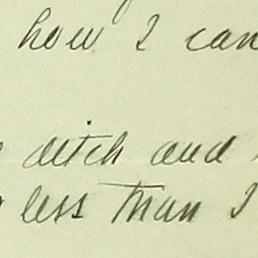 how I can
ditch and
less than I